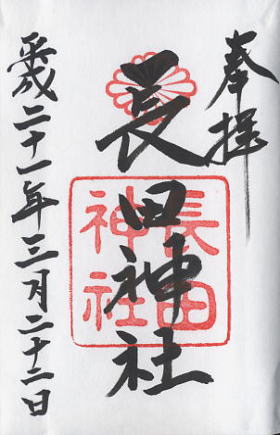 奉拝
長田神社
長田
神社
平成二十一年三月二十二日